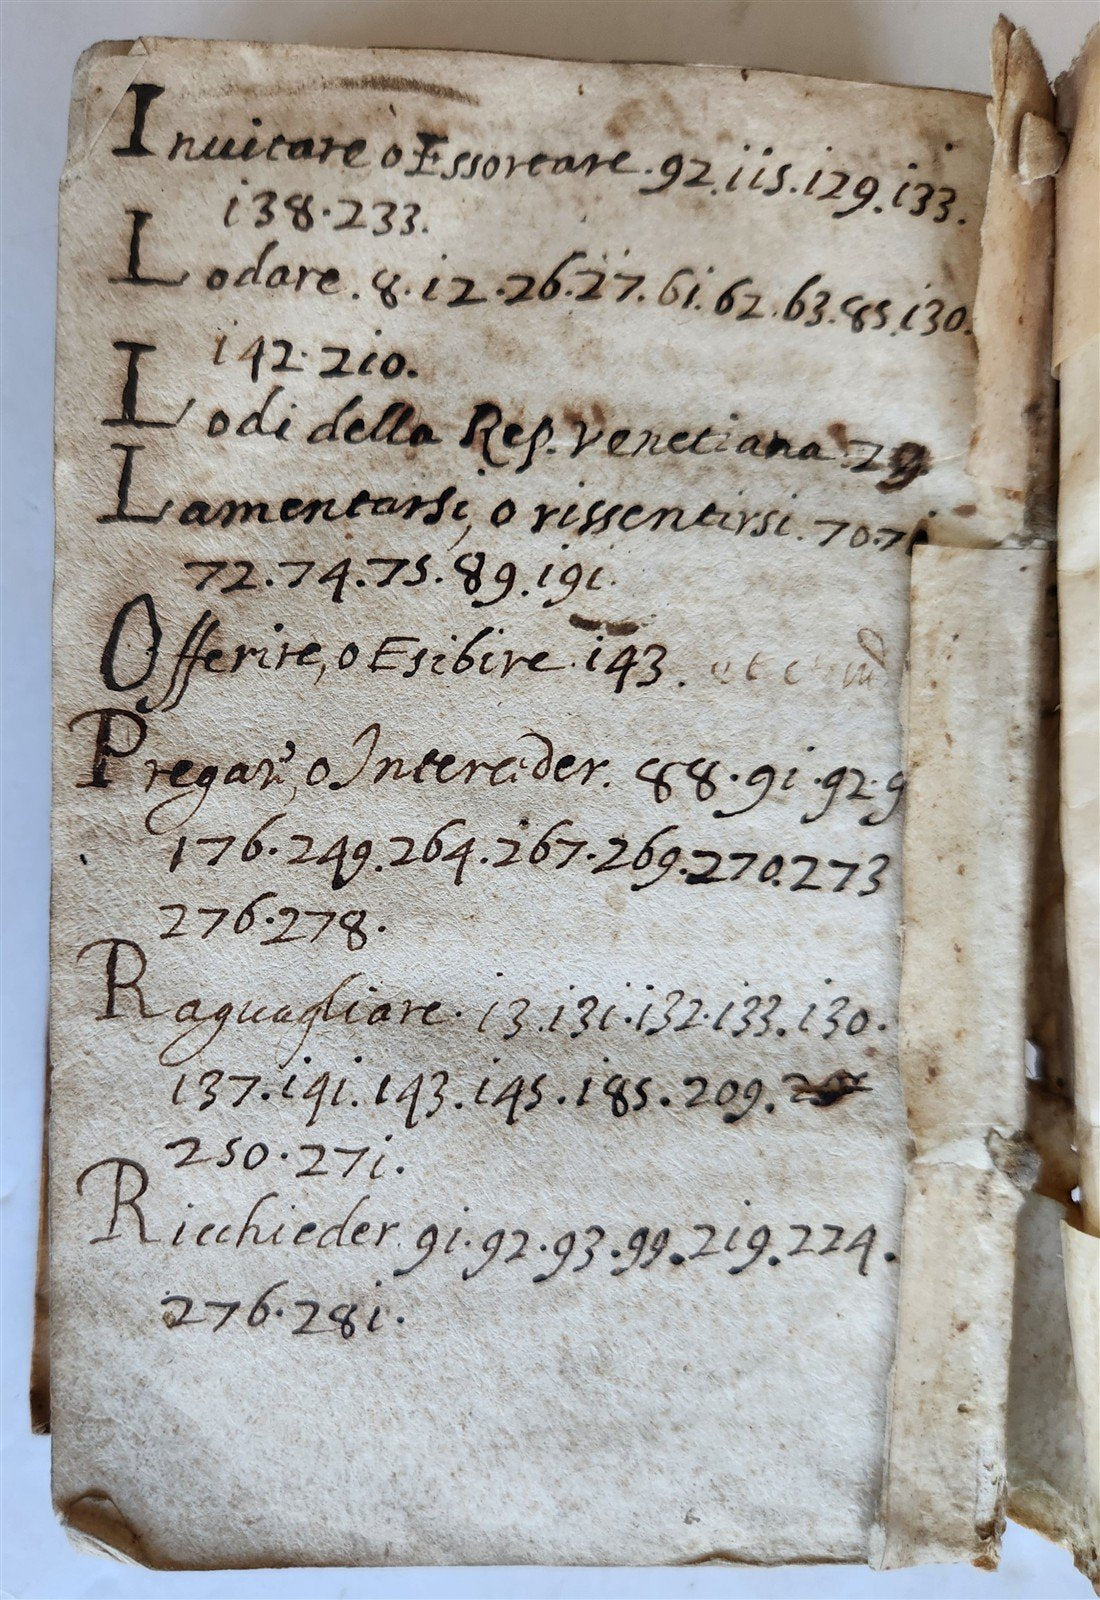 Inuitare ò Essortare. 92. 115. 129. 133.
138. 233.
Lodare. 8. 12. 26. 27. 61. 62. 63. 85. 130.
142. 210.
Lodi della Rep. Venetiana. 29
Lamentarsi, o rissentirsi. 70. 71
72. 74. 75. 89. 191.
Offerire, o Esibire. 143.
Pregar', o Interceder. 88. 91. 92. 9
176. 249. 264. 267. 269. 270. 273
276. 278.
Raguagliare. 13. 131. 132. 133. 130.
137. 141. 143. 145. 185. 209.
250. 271.
Ricchieder. 91. 92. 93. 99. 219. 224.
276. 281.